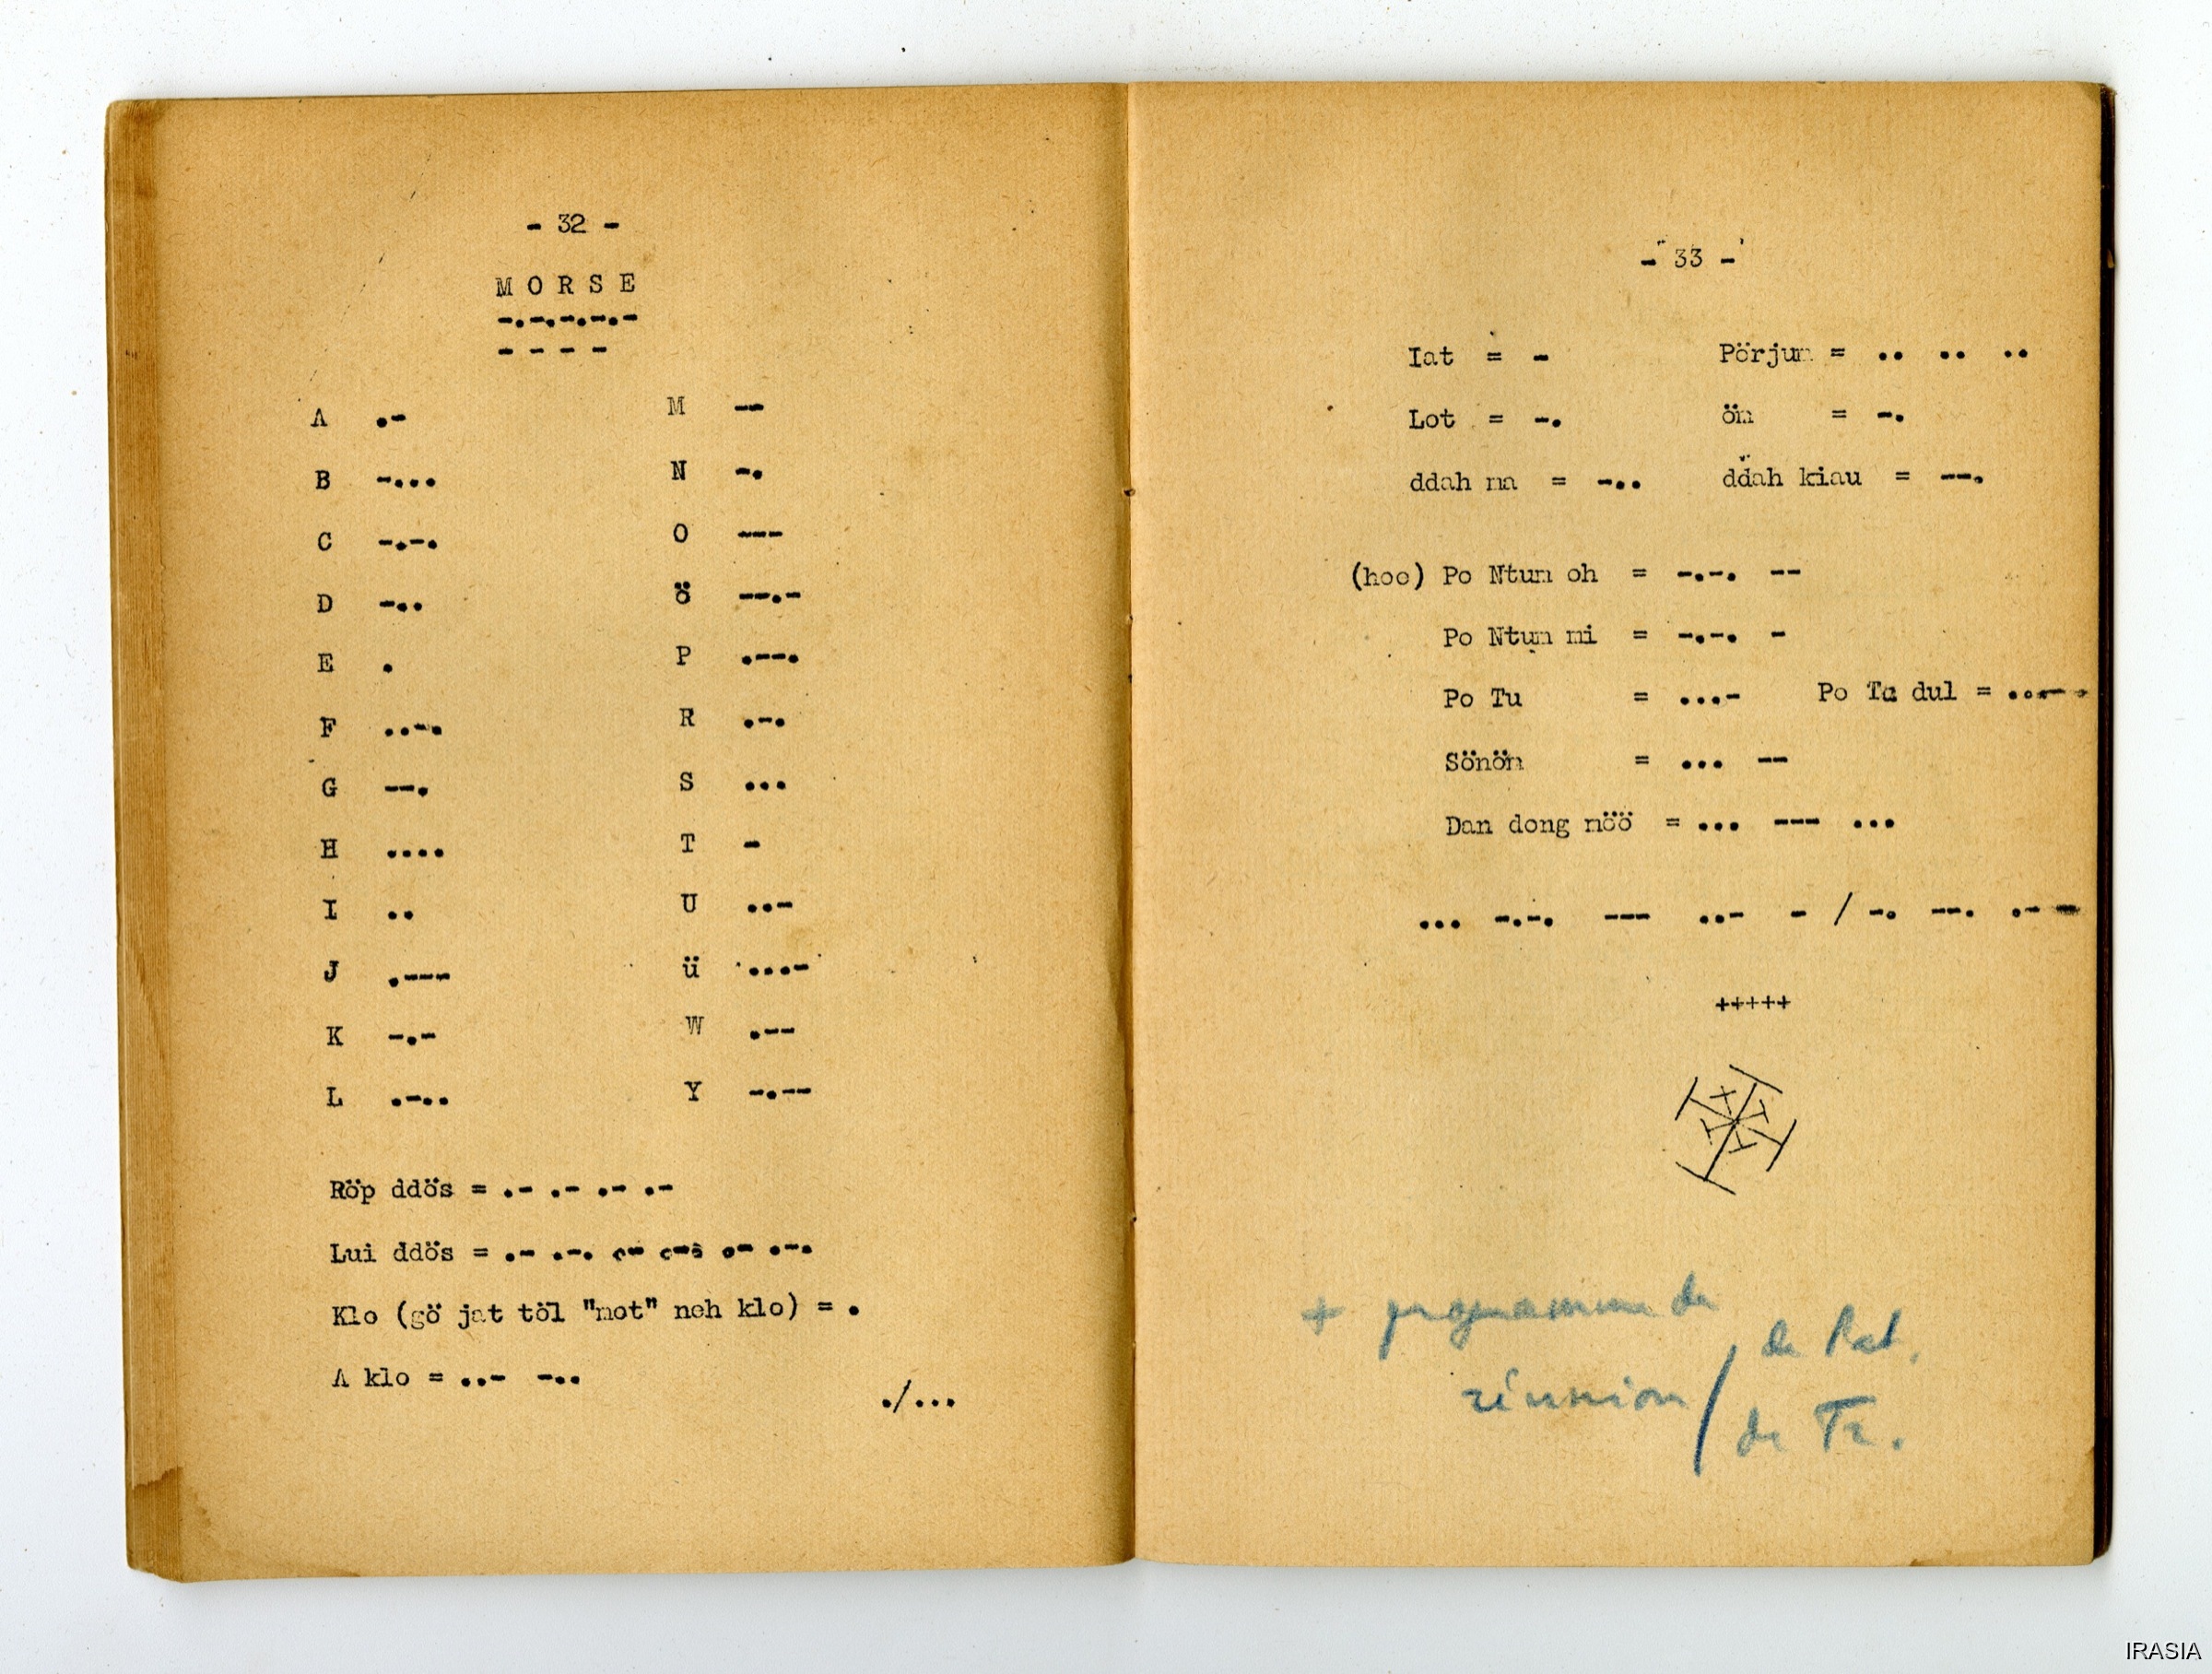 - 32 -
M O R S E
-.-.-.-.-
- - - -
A .-
B -...
C -.-.
D -..
E .
F ..-.
G --.
H ....
I ..
J .---
K -.-
L .-..
M --
N -.
O ---
ö --.-
P .--.
R .-.
S ...
T -
U ..-
ü ...-
W .--
Y -.--
Röp ddös = .- .- .- .-
Lui ddös = .- .-. .- .-. .- .-.
Klo (gö jat töl "mot" neh klo) = .
A klo = ..- -..
./...
- 33 -
Iat = -
Pörjun = .. .. ..
Lot = -.
ön = -.
ddah na = -..
ddah kiau = --.
(hoo) Po Ntum oh = -.-. --
Po Ntum mi = -.-. -
Po Tu = ...-
Po Tu dul = ...-.
Sönön = ... --
Dan dong nöö = ... --- ...
... -.-. --- ..- - / -. --. .--
+++++
+ programme de
réunion / de Pat.
de Tr.
IRASIA